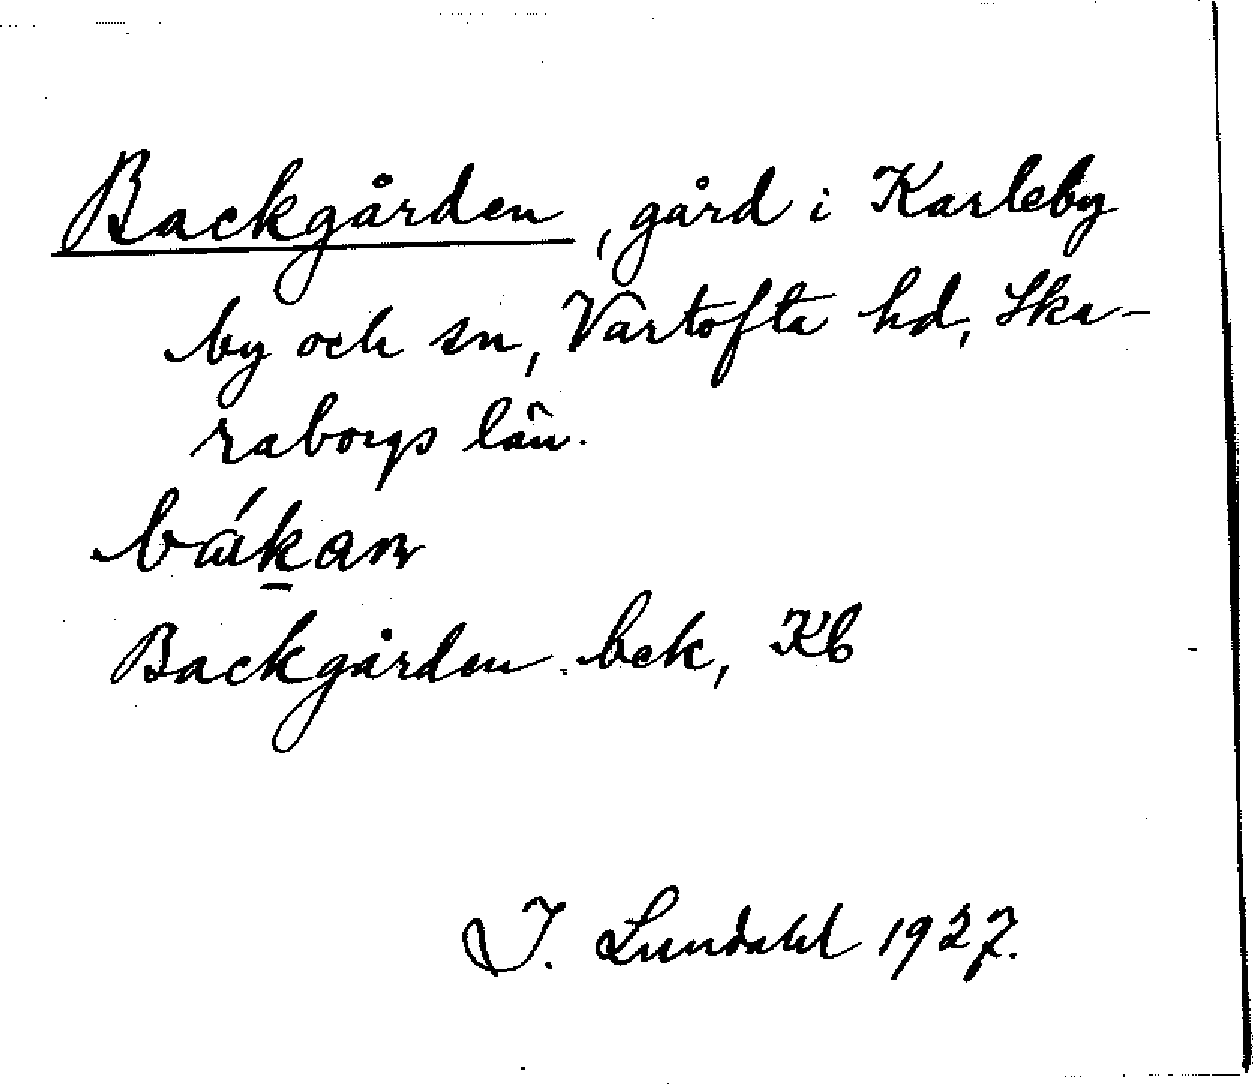 Backgården, gård i Karleby
by och sn, Vartofta hd, Ska-
raborgs län.
Backgården bek, Kb
I. Lundahl 1927.